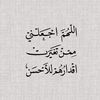 اللَّهُمَّ اجْعَلْنِي
مِمَّنْ تَغَيَّرَتْ
أَقْدَارُهُمْ لِلأَحْسَنِ